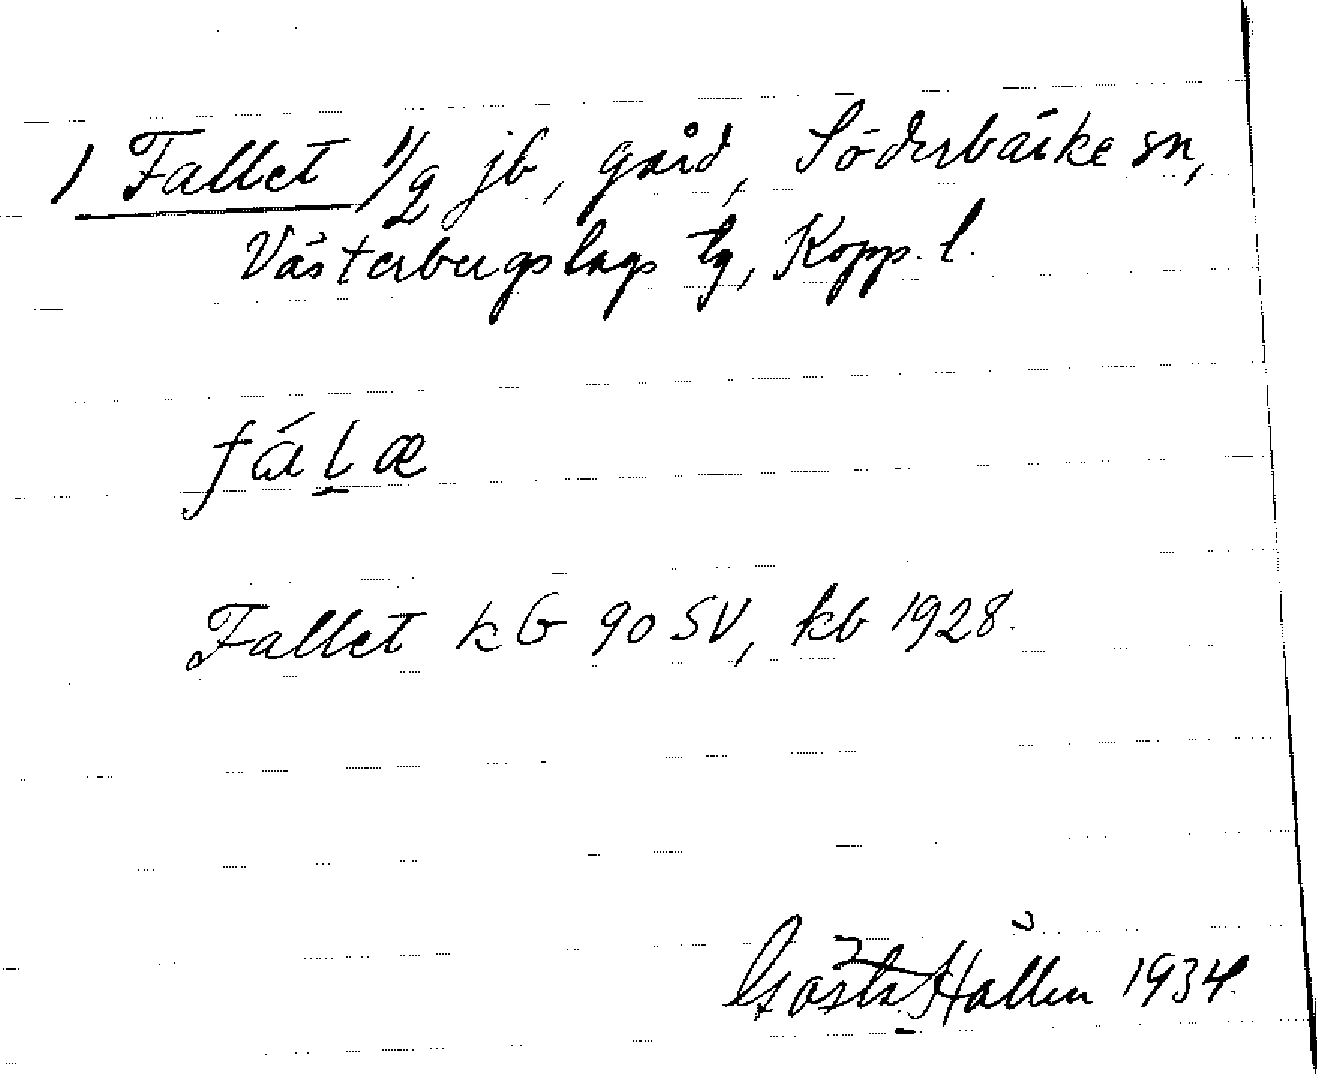 1 Fallet 1/2 jb, gård, Söderbärke sn,
Västerbergslags tg, Kopp. l.
fálæ
Fallet kG 90 SV, kb 1928.
Gösta Hallen 1934.